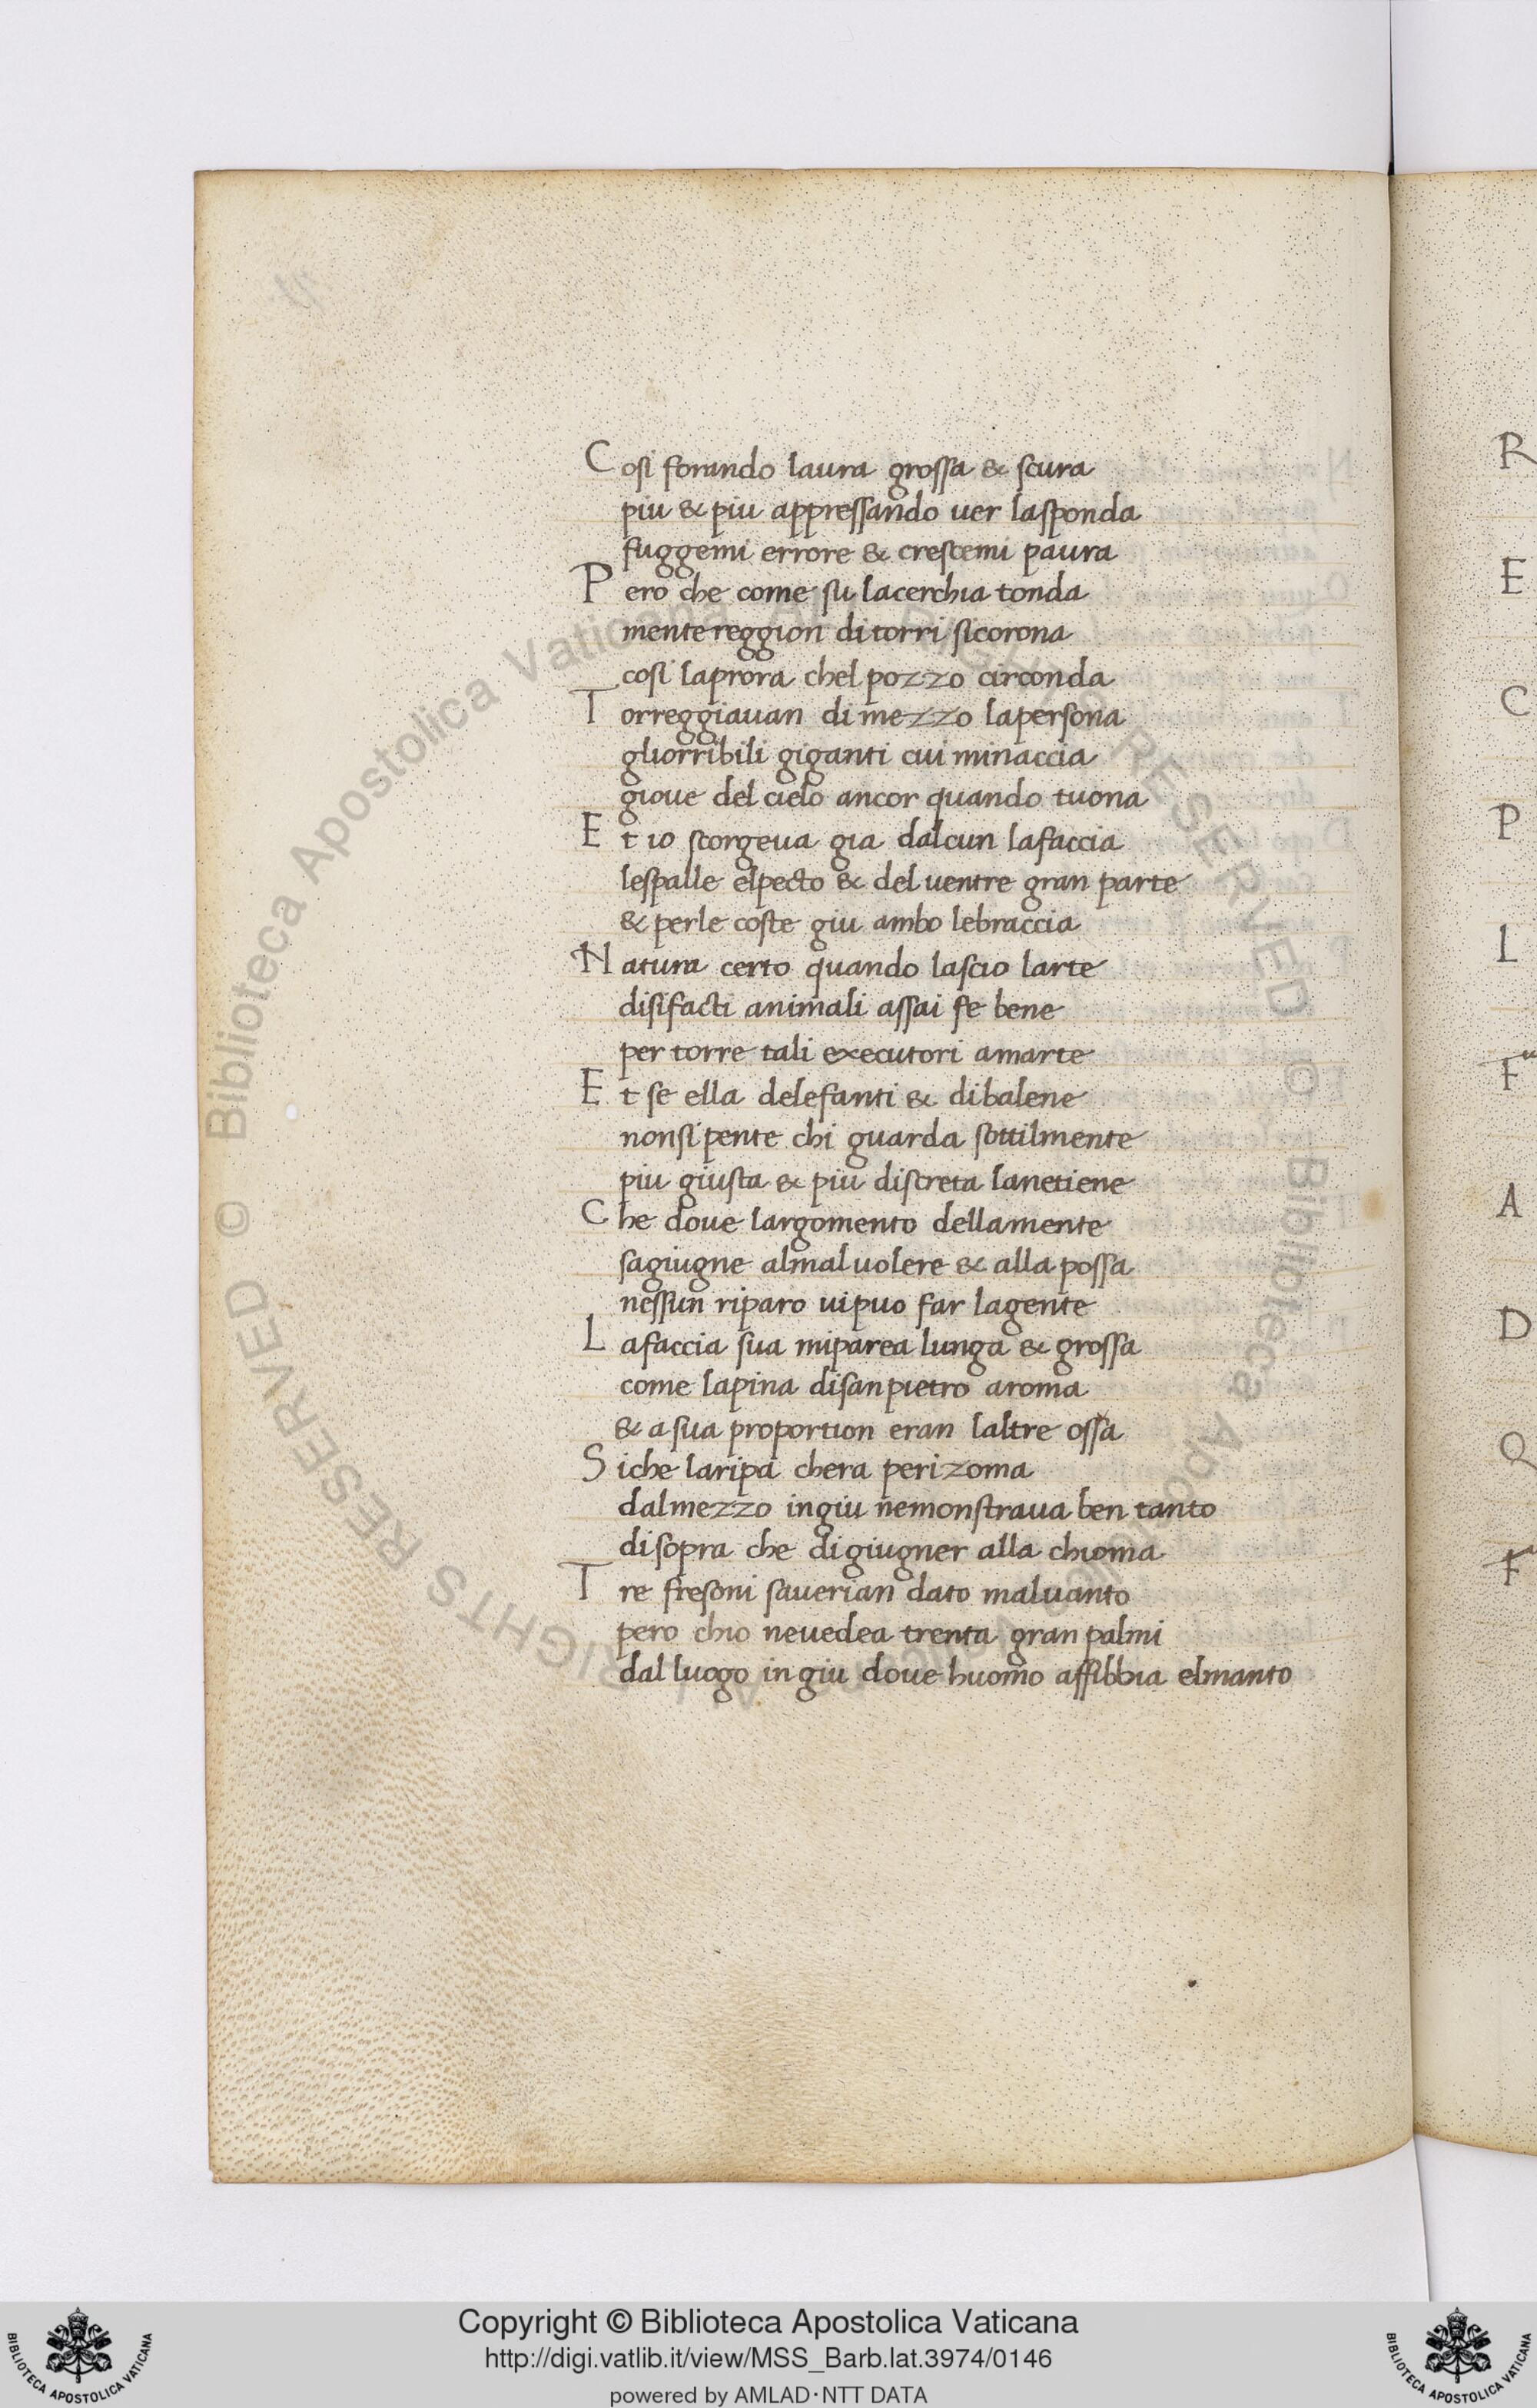 Cosi forando laura grossa & scura
piu & piu appressando uer lasponda
fuggemi errore & crescemi paura
Pero che come su lacerchia tonda
mentereggion di torri sicorona
cosi laprora chel pozzo circonda
Torreggiauan di mezzo lapersona
gliorribili giganti cui minaccia
gioue del cielo ancor quando tuona
Et io scorgeua gia dalcun lafaccia
lespalle elpecto & del uentre gran parte
& perle coste giu ambo lebraccia
Natura certo quando lascio larte
disifacti animali assai fe bene
per torre tali executori amarte
Et se ella delefanti & dibalene
nonsi pente chi guarda sottilmente
piu giusta & piu discreta lanetiene
Che doue largomento dellamente
sagiugne almal uolere & alla possa
nessun riparo uipuo far lagente
Lafaccia sua miparea lunga & grossa
come lapina disanpietro aroma
& a sua proportion eran laltre ossa
Siche laripa chera perizoma
dalmezzo ingiu nemonstraua ben tanto
disopra che digiugner alla chioma
Tre fresoni sauerian dato maluanto
pero chio neuedea trenta gran palmi
dal luogo in giu doue huomo affibbia elmanto
R
E
C
P
L
F
A
D
Q
F
© Biblioteca Apostolica Vaticana ALL RIGHTS RESERVED © Biblioteca Apostolica Vaticana ALL RIGHTS RESERVED
Copyright © Biblioteca Apostolica Vaticana
http://digi.vatlib.it/view/MSS_Barb.lat.3974/0146
powered by AMLAD·NTT DATA
BIBLIOTECA APOSTOLICA VATICANA
BIBLIOTECA APOSTOLICA VATICANA